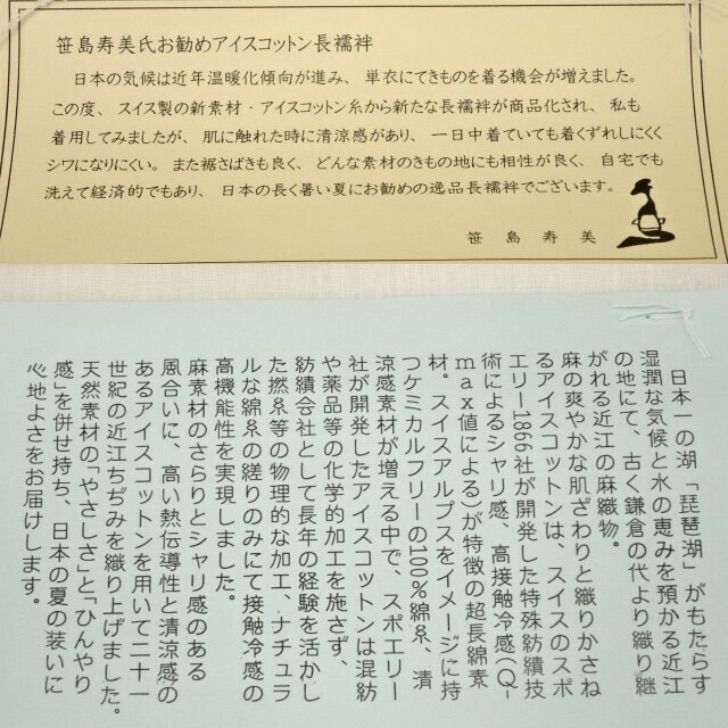 笹島寿美氏お勧めアイスコットン長襦袢
日本の気候は近年温暖化傾向が進み、単衣にてきものを着る機会が増えました。
この度、スイス製の新素材・アイスコットン糸から新たな長襦袢が商品化され、私も
着用してみましたが、肌に触れた時に清涼感があり、一日中着ていても着くずれしにくく
シワになりにくい。また裾さばきも良く、どんな素材のきもの地にも相性が良く、自宅でも
洗えて経済的でもあり、日本の長く暑い夏にお勧めの逸品長襦袢でございます。
笹島寿美
日本一の湖「琵琶湖」がもたらす
湿潤な気候と水の恵みを預かる近江
の地にて、古く鎌倉の代より織り継
がれる近江の麻織物。
麻の爽やかな肌ざわりと織りかさね
るアイスコットンは、スイスのスポ
エリー1866社が開発した特殊紡績技
術によるシャリ感、高接触冷感(Q-
max値による)が特徴の超長綿素
材。スイスアルプスをイメージに持
つケミカルフリーの100%綿糸、清
涼感素材が増える中で、スポエリー
社が開発したアイスコットンは混紡
や薬品等の化学的加工を施さず、
紡績会社として長年の経験を活かし
た撚糸等の物理的な加工、ナチュラ
ルな綿糸の縒りのみにて接触冷感の
高機能性を実現しました。
麻素材のさらりとシャリ感のある
風合いに、高い熱伝導性と清涼感の
あるアイスコットンを用いて二十一
世紀の近江ちぢみを織り上げました。
天然素材の「やさしさ」と「ひんやり
感」を併せ持ち、日本の夏の装いに
心地よさをお届けします。